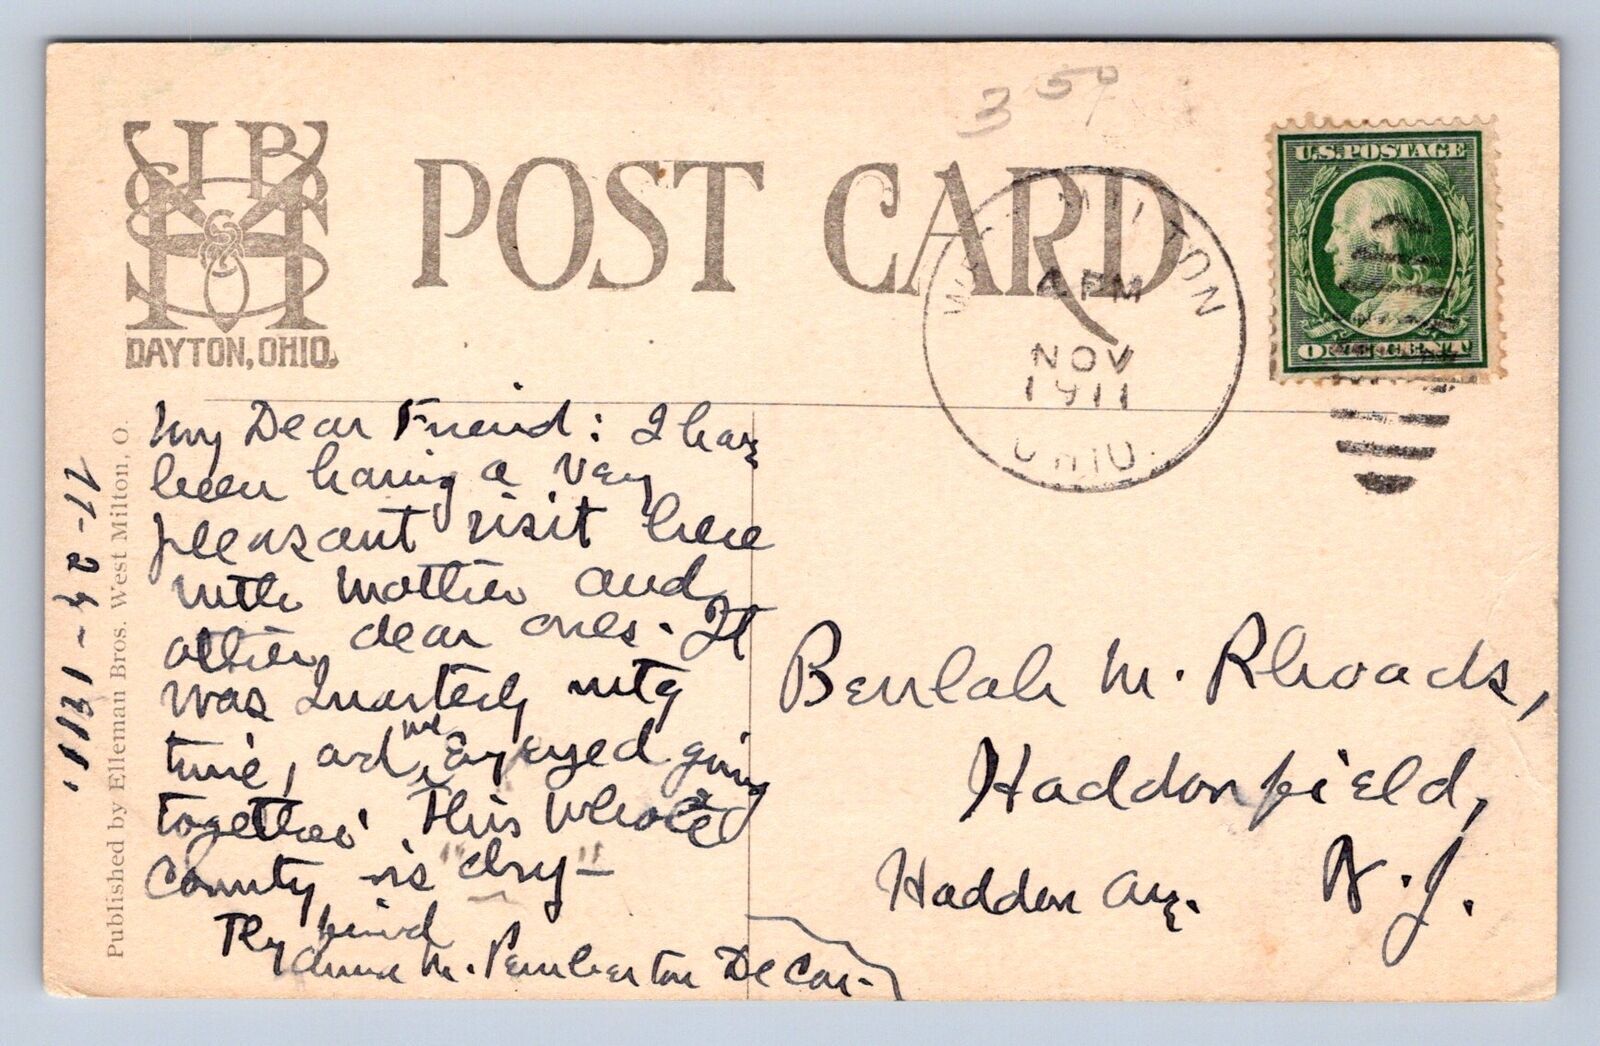 3 50
POST CARD
U.S. POSTAGE
WEST MILTON
4 PM
NOV
1911
OHIO.
DAYTON, OHIO.
My Dear Friend: I have
been having a very
pleasant visit here
with mother and
other dear ones. It
was Quarterly mtg
time, and we Enjoyed going
together. This whole
County is "dry" -
Thy friend
Anna M. Pemberton DeCou.
11-24-1911.
Published by Elleman Bros. West Milton, O.
Beulah M. Rhoads,
Haddonfield,
Haddon Ave. N.J.